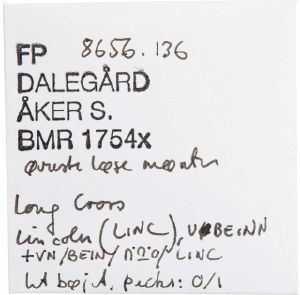 FP 8656.136
DALEGÅRD
ÅKER S.
BMR 1754x
øverste løse mønter
Long Cross
Lincoln (LINC), VꞰBEINN
+VN/BEIN/ /LINC
Wt bøjt. pecks: 0/1